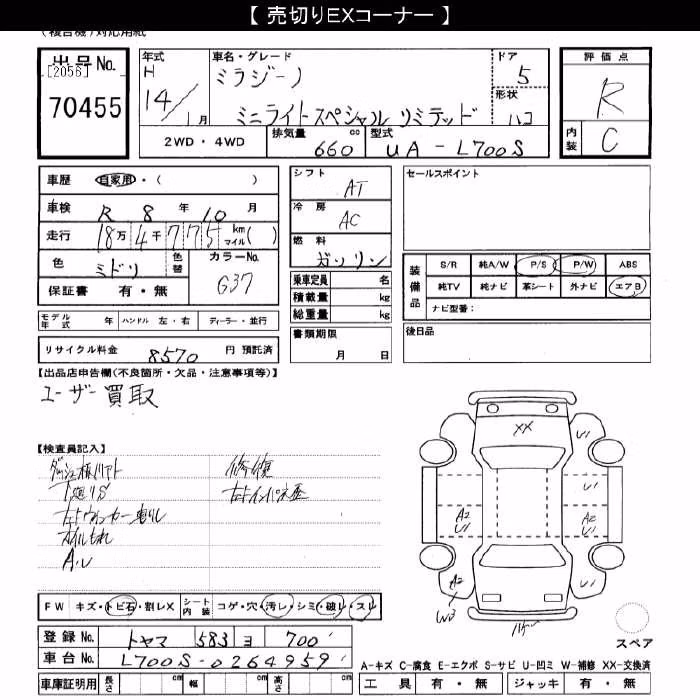 【 売切りEXコーナー 】
(複合機)対応用紙
出品No.
[2056]
70455
年式
H
14/1月
車名・グレード
ミラジーノ
ミニライトスペシャル リミテッド
ドア
5
形状
ハコ
評価点
R
内装
C
2WD・4WD
排気量 660 cc
型式 UA-L700S
車歴 自家用・( )
車検 R 8 年 10 月
走行 18万4千775 km マイル( )
色 ミドリ 色替
カラーNo. G37
保証書 有・無
シフト
AT
冷房
AC
燃料
ガソリン
乗車定員 名
積載量 kg
総重量 kg
セールスポイント
装備品
S/R 純A/W P/S P/W ABS
純TV 純ナビ 革シート 外ナビ エアB
ナビ型番:
モデル年式 年 ハンドル 左・右 ディーラー・並行
書類期限
月 日
後日品
リサイクル料金 8570 円 預託済
【出品店申告欄(不良箇所・欠品・注意事項等)】
ユーザー買取
【検査員記入】
修復
オイルもれ
A.U
XX
U1
U1
A2
A2
A2
U1
W3
FW キズ・トビ石・割レX シート内装 コゲ・穴・汚レ・シミ・破レ・スレ
スペア
登録No. トヤマ 583 ヨ 700
車台No. L700S-0264959
A-キズ C-腐食 E-エクボ S-サビ U-凹ミ W-補修 XX-交換済
車庫証明用 長さ cm 幅 cm 高さ cm
工具 有・無 ジャッキ 有・無